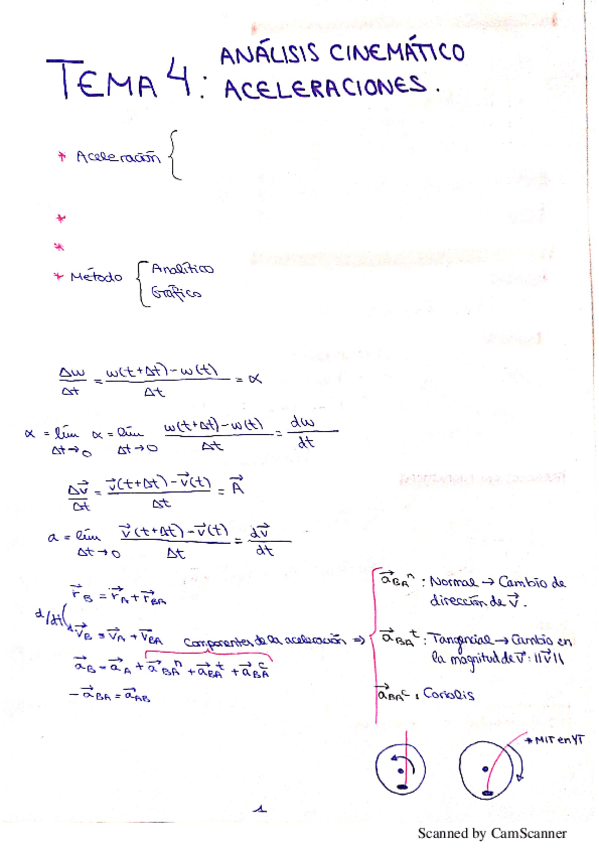 TEMA 4: ANÁLISIS CINEMÁTICO
ACELERACIONES.
* Aceleración {
*
*
* Método { Analítico
Gráfico
Δw/Δt = w(t+Δt)-w(t)/Δt = α
α = lím Δt→0 α = lím Δt→0 w(t+Δt)-w(t)/Δt = dw/dt
Δv⃗/Δt = v⃗(t+Δt)-v⃗(t)/Δt = A⃗
a = lím Δt→0 v⃗(t+Δt)-v⃗(t)/Δt = dv⃗/dt
r⃗B = r⃗A + r⃗BA
d/dt
v⃗B = v⃗A + v⃗BA
a⃗B = a⃗A + a⃗BAⁿ + a⃗BAᵗ + a⃗BAᶜ
-a⃗BA = a⃗AB
Componentes de la aceleración ⇒
a⃗BAⁿ : Normal → Cambio de
dirección de v⃗.
a⃗BAᵗ : Tangencial → Cambio en
la magnitud de v⃗ : ||v⃗||
a⃗BAᶜ : Coriolis
* MIT en YT
1
Scanned by CamScanner